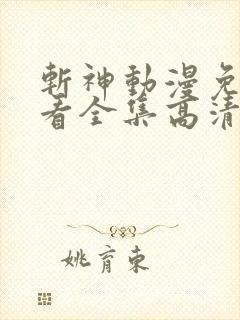 斬神動漫免
看全集高清
姚育東